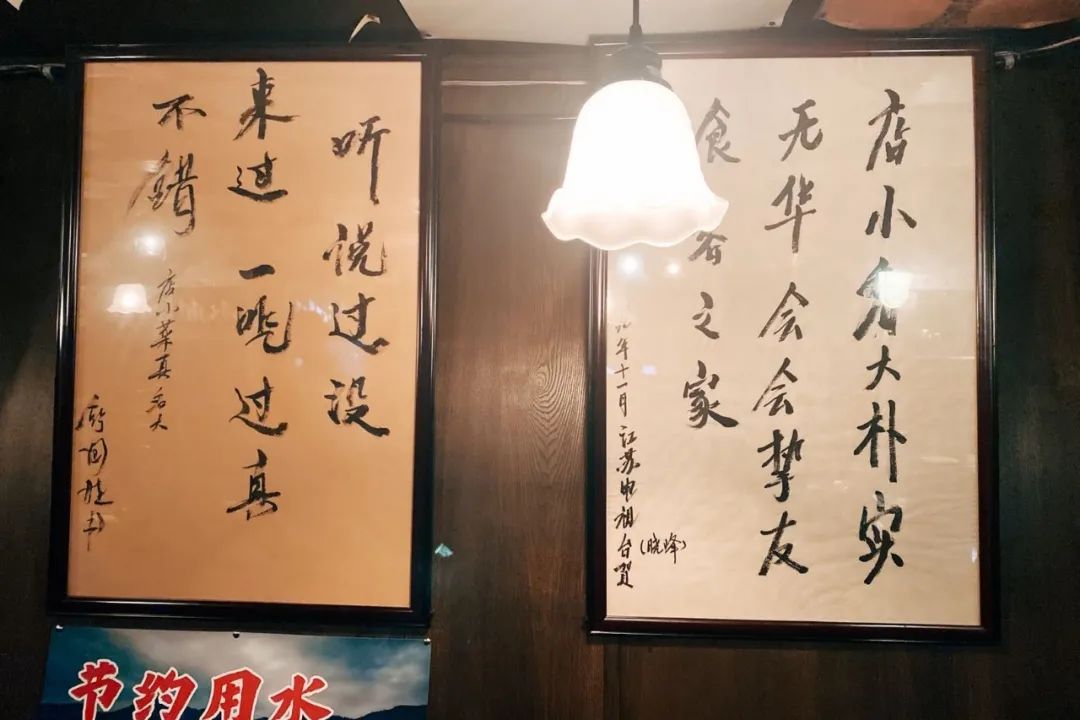 听说过没
来过一吃过真
不错
店小菜真名大
店小名大朴实
无华会会挚友
食客之家
年十一月江苏电视台贺
(晓峰)
节约用水